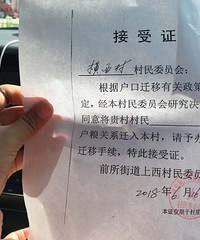 接受证
横西村 村民委员会:
根据户口迁移有关政策
定,经本村民委员会研究决
同意将贵村村民
户粮关系迁入本村,请予办
迁移手续,特此接受证。
前所街道上西村民委员
2018年6月16
本证仅限于村